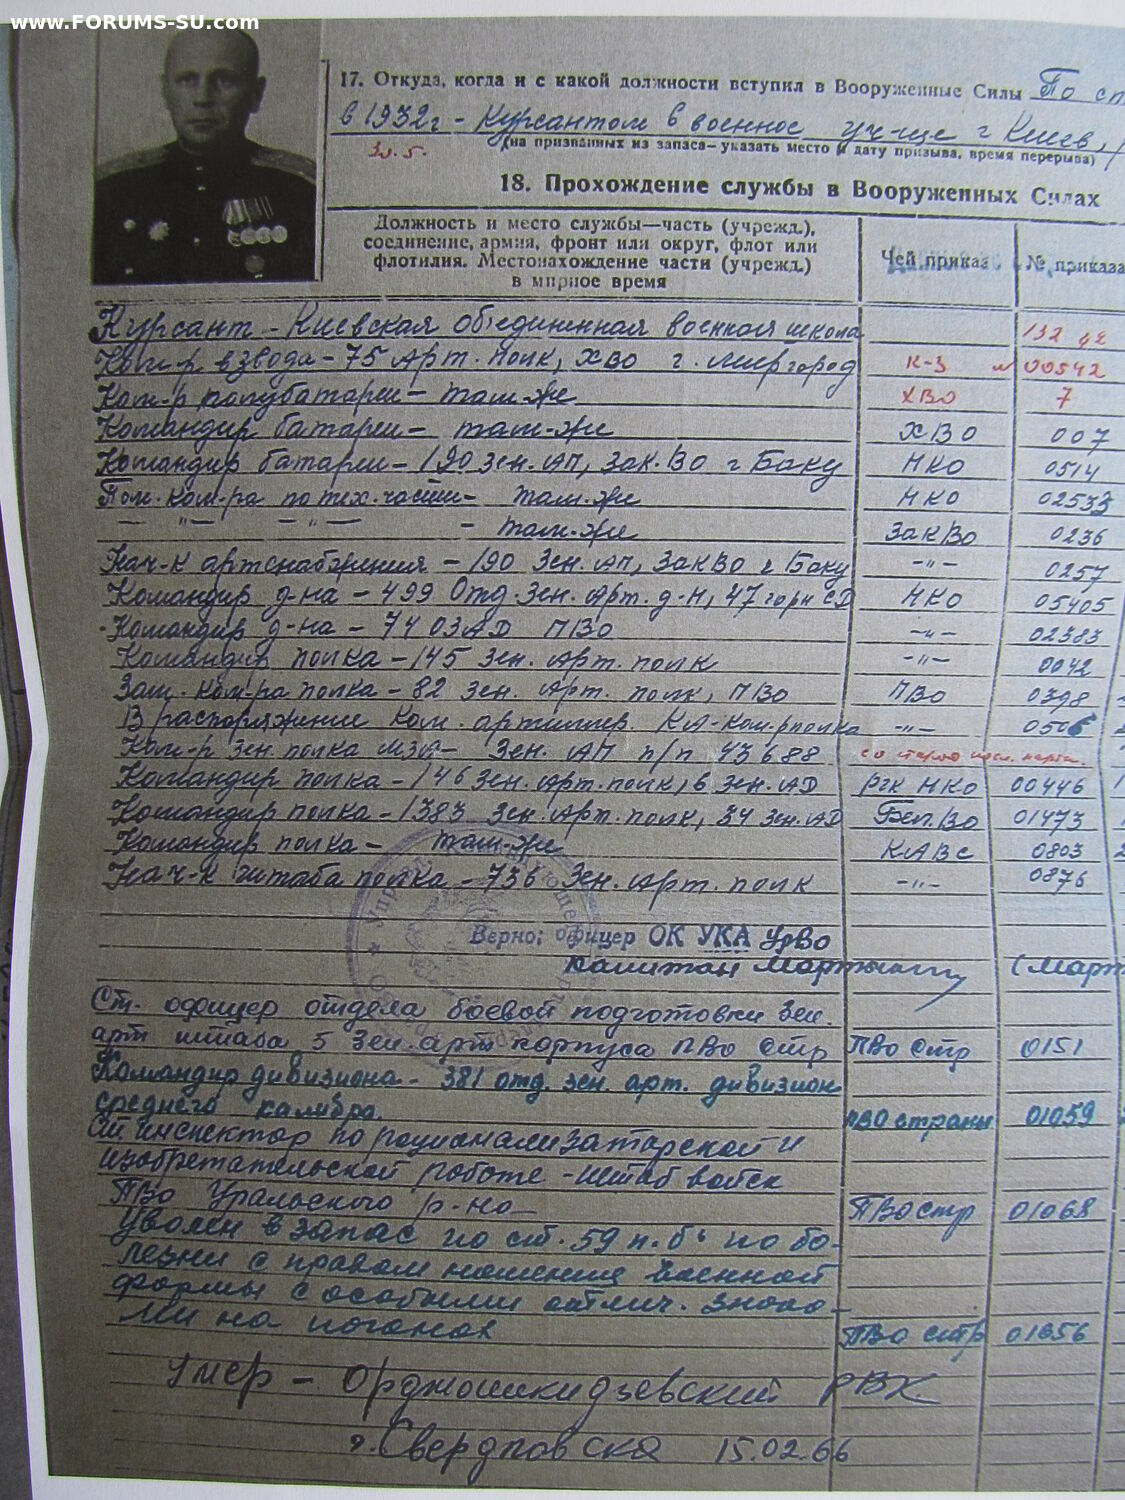 www.FORUMS-SU.com
17. Откуда, когда и с какой должности вступил в Вооруженные Силы По сп
в 1932г - Курсантом в военное уч-ще г Киев,
(на призванных из запаса—указать место и дату призыва, время перерыва)
18. Прохождение службы в Вооруженных Силах
Должность и место службы—часть (учрежд.), соединение, армия, фронт или округ, флот или флотилия. Местонахождение части (учрежд.) в мирное время
Чей приказ
№ приказа
Курсант - Киевская объединенная военная школа 132
Ком-р взвода - 75 Арт. полк, ХВО г. Миргород К-З № 00542
Ком-р полубатареи - там-же ХВО 7
Командир батареи - там-же ХВО 007
Командир батареи - 190 Зен. АП, Зак. ВО г Баку НКО 0514
Пом. ком-ра по тех. части - там-же НКО 02533
— "— — "— - там-же ЗакВО 0236
Нач-к артснабжения - 190 Зен. АП, ЗакВО г Баку —"— 0257
Командир д-на - 499 Отд. Зен. Арт. д-н, 47 горн СД НКО 05405
Командир д-на - 74 ОЗАД ПВО —"— 02383
Командир полка - 145 Зен. Арт. полк —"— 0042
Зам. ком-ра полка - 82 Зен. Арт. полк, ПВО ПВО 0398
В распоряжение Ком. артиллер. КА - ком-р полка —"— 0506
Ком-р Зен. полка МЗА - Зен. АП п/п 43688
Командир полка - 146 Зен. Арт. полк, 6 Зен. АД РГК НКО 00446
Командир полка - 1383 Зен. Арт. полк, 34 Зен. АД Бел. ВО 01473
Командир полка - там-же КАВС 0803
Нач-к штаба полка - 736 Зен. Арт. полк —"— 0876
Верно: офицер ОК УКА УрВО
капитан (Март
Ст. офицер отдела боевой подготовки Зен.
арт штаба 5 Зен. арт корпуса ПВО Стр ПВО Стр 0151
Командир дивизиона - 381 отд. зен. арт. дивизион
среднего калибра. ПВО страны 01059
Ст инспектор по рационализаторской и
изобретательской работе - штаб войск
ПВО Уральского р-на ПВО стр 01068
Уволен в запас по ст. 59 п. б" по бо-
лезни с правом ношения военной
формы с особыми отлич. знака-
ми на погонах ПВО стр 01656
Умер - Орджоникидзевский РВК
г. Свердловска 15.02.66